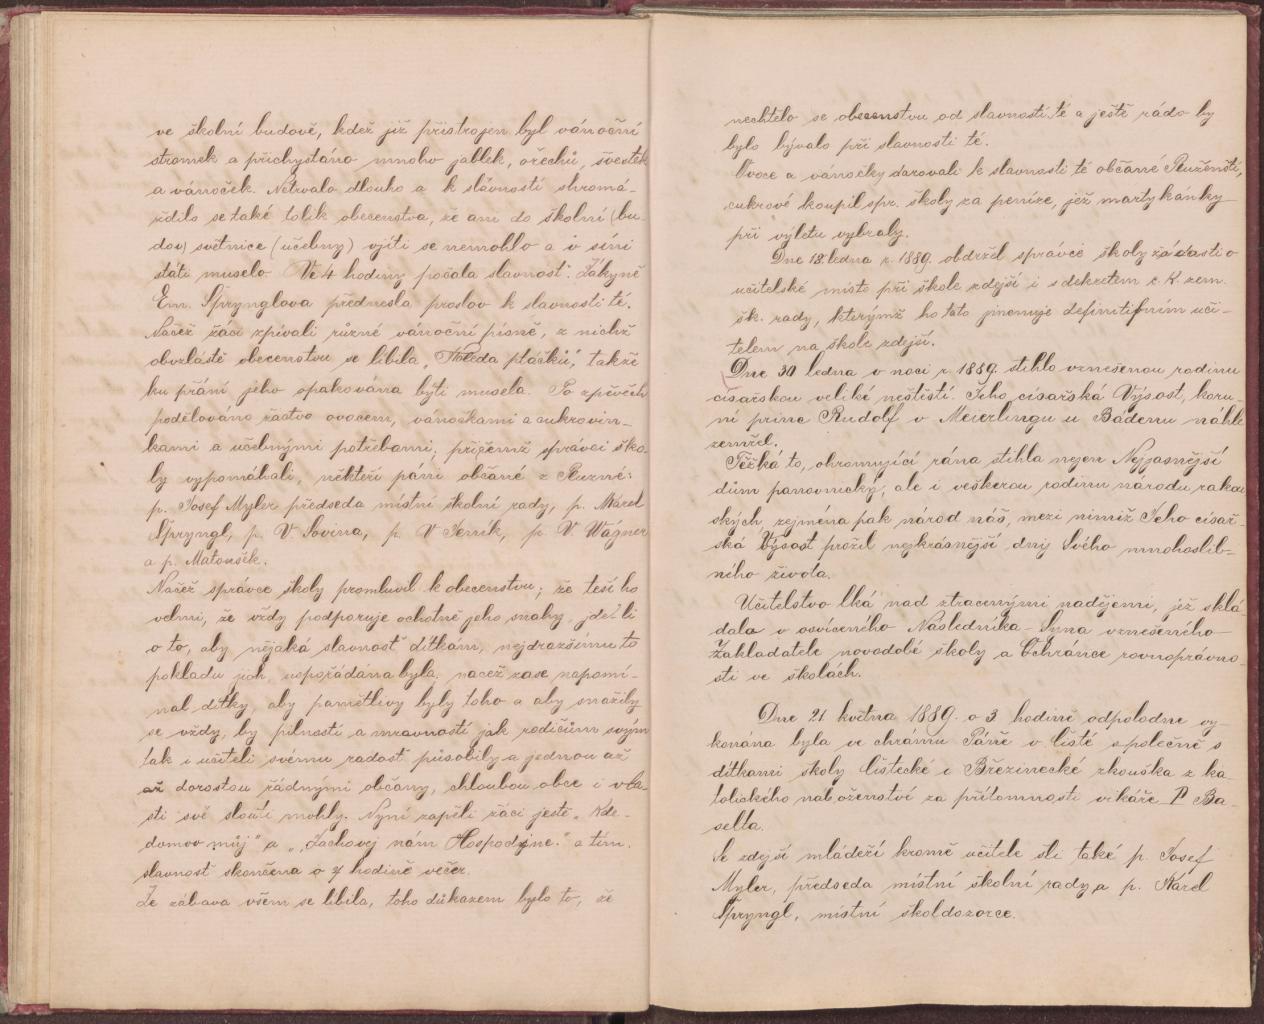 ve školní budově, kdež již přistrojen byl vánoční
stromek a přichystáno mnoho jablek, ořechů, švestek
a vánoček. Netrvalo dlouho a k slávností shromá-
ždilo se také tolik obecenstva, že ani do školní (bu-
dov) světnice (učebny) vjíti se nemohlo a v síni
státi muselo. Ve 4 hodiny počala slavnosť. Žákyně
Em. Šprynglova přednesla proslov k slavnosti té.
Načež žáci zpívali různé vánoční písně, z nichž
obzlástě obecenstvu se líbila, "Koleda ptáčků", takže
ku přání jeho opakována býti musela. Po zpěvěch
podělováno žactvo ovocem, vánočkami a cukrovin-
kami a učebnými potřebami; přičemž správci ško-
ly vypomáhali, někteří páni občané z :
p. Josef Myler předseda místní školní rady, p. Karel
Špryngl, p. V Sovina, p. V Seník, p. V. Wágner
a p. Matoušek.
Načež správce školy promluvil k obecenstvu; že těší ho
velmi, že vždy podporuje ochotně jeho snahy, jdeť li
o to, aby nějaká slavnosť dítkám, nejdražšímu to
pokladu jich, uspořádána byla, načež zase napomí-
nal dítky, aby pamětlivy byly toho a aby snažily
se vždy, by pilností a mravností jak rodičům svým
tak i učiteli svému radost působily a jednou až
až dorostou řádnými občany, chloubou obce i vla-
sti své slouti mohly. Nyní zapěli žáci ještě "Kde
domov můj" a "Zachovej nám Hospodyne." a tím
slavnost skončena o 7 hodině večer.
Že zábava všem se líbila, toho důkazem bylo to, že
nechtělo se obecenstvu od slavností té a ještě rádo by
bylo bývalo při slavnosti té.
Ovoce a vánočky darovali k slavnosti té občané ,
cukrové koupil spr. školy za peníze, jež martykánky
při výletu vybraly.
Dne 18. ledna r. 1889. obdržel správce školy žádasti o
učitelské místo při škole zdejší i s dekretem c. K. zem.
šk. rady, kterýmž ho tato jmenuje definitifním uči-
telem na škole zdejší.
Dne 30 ledna v noci r. 1889. stihlo vznešenou rodinu
císařskou veliké neštěstí. Jeho císařská Výsost, koru-
ní princ Rudolf v Meierlingu u Bádenu náhle
zemřel.
Těžká to, ohromující rána stihla nejen Nejjasnější
dům panovnický, ale i veškerou rodinu národu rakou
ských, zejména pak národ náš, mezi nimiž Jeho císař-
ská Výsost prožil nejkrásnější dny Svého mnohoslib-
ného života.
Učitelstvo lká nad ztracenými nadějemi, jež sklá
dalo v osvíceného Následníka - Syna vznešeného
Zakladatele novodobé školy a Ochránce rovnoprávno-
sti ve školách.
Dne 21 května 1889. o 3 hodině odpoledne vy-
konána byla ve chrámu Páně v Čisté společně s
dítkami školy čistecké i Březinecké zkouška z ka-
tolického náboženství za přítomnosti vikáře P. Ba-
selta.
Se zdejší mládeží kromě učitele šli také p. Josef
Myler, předseda místní školní rady a p. Karel
Špryngl, místní školdozorce.